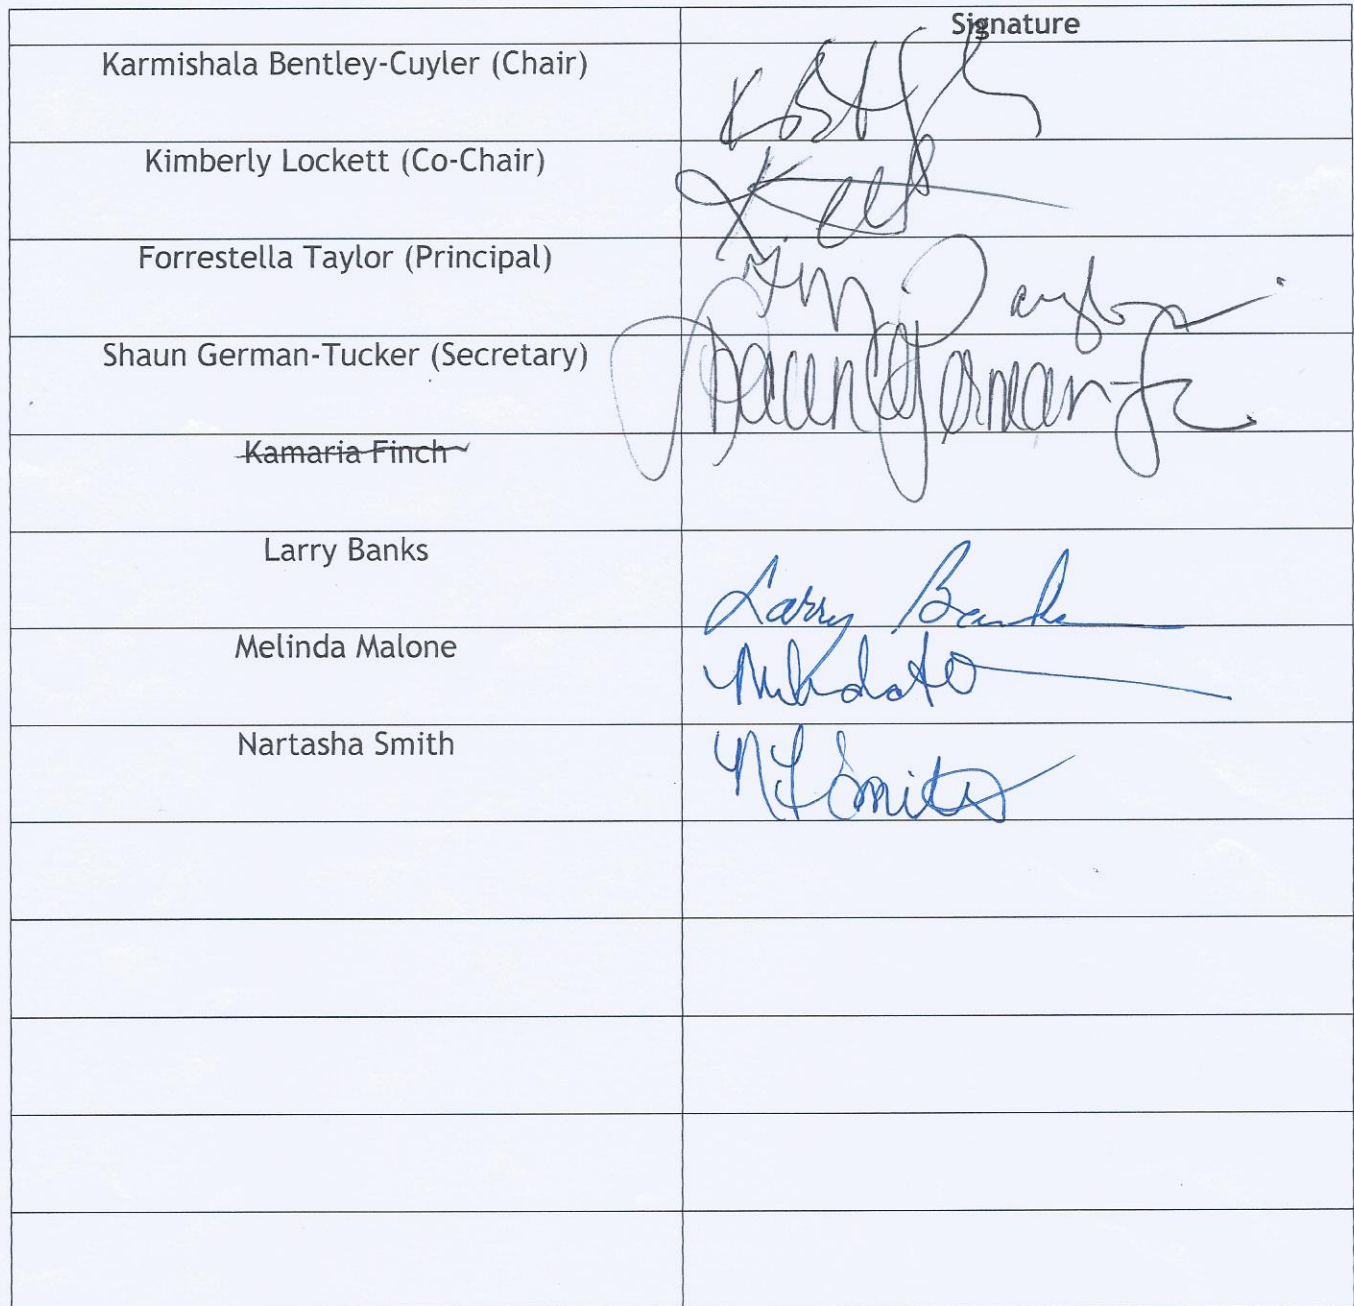 Signature
Karmishala Bentley-Cuyler (Chair)
Kimberly Lockett (Co-Chair)
Forrestella Taylor (Principal)
Taylor
Shaun German-Tucker (Secretary)
Shaun German-
Kamaria Finch
Larry Banks
Larry Banks
Melinda Malone
Nartasha Smith
Smith